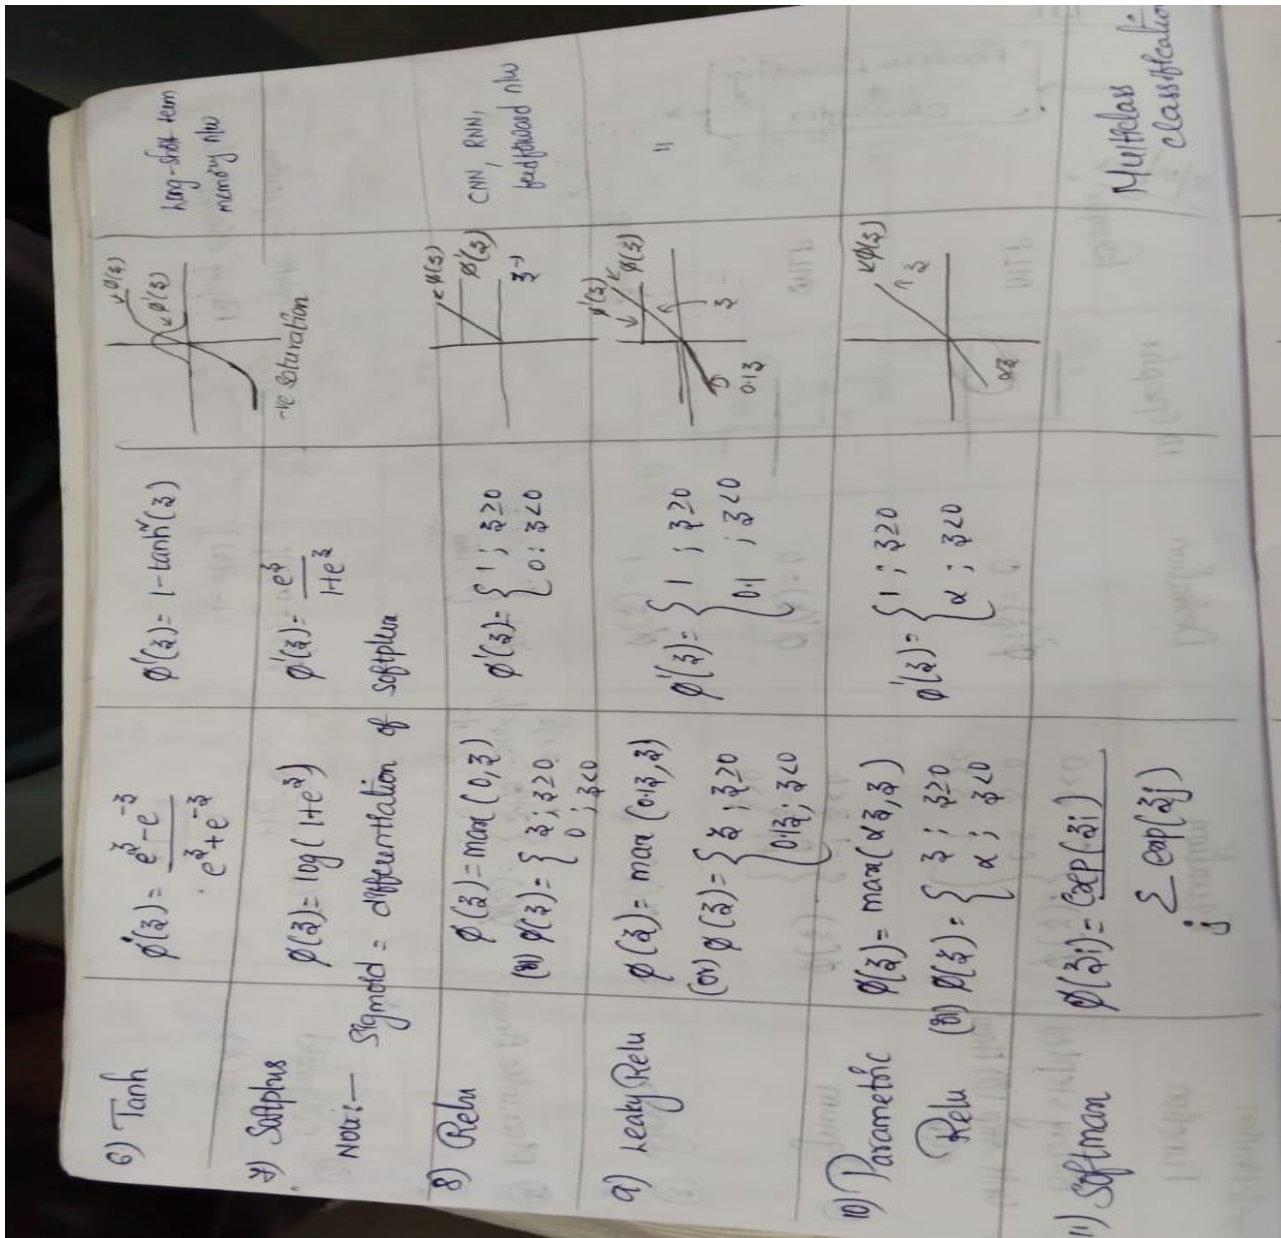 6) Tanh
φ'(z) = e^z - e^-z
e^z + e^-z
φ'(z) = 1 - tanh²(z)
↙φ(z)
↙φ'(z)
Long-short term
memory n/w
7) Softplus
φ(z) = log(1+e^z)
φ'(z) = e^z
1+e^z
-ve saturation
Note:- Sigmoid = differentiation of softplus
8) Relu
φ(z) = max(0,z)
(or) φ(z) = { z ; z≥0
0 ; z<0
φ'(z) = { 1 ; z≥0
0 ; z<0
φ(z)
φ'(z)
z→
CNN, RNN,
feedforward n/w
9) Leaky Relu
φ(z) = max(0.1z, z)
(or) φ(z) = { z ; z≥0
0.1z ; z<0
φ'(z) = { 1 ; z≥0
0.1 ; z<0
φ'(z)
φ(z)
z
0.1z
"
10) Parametric
Relu
φ(z) = max(αz, z)
(or) φ(z) = { z ; z≥0
α ; z<0
φ'(z) = { 1 ; z≥0
α ; z<0
φ(z)
z
αz
11) Softmax
φ(zi) = exp(zi)
Σ exp(zj)
j
Multiclass
classification